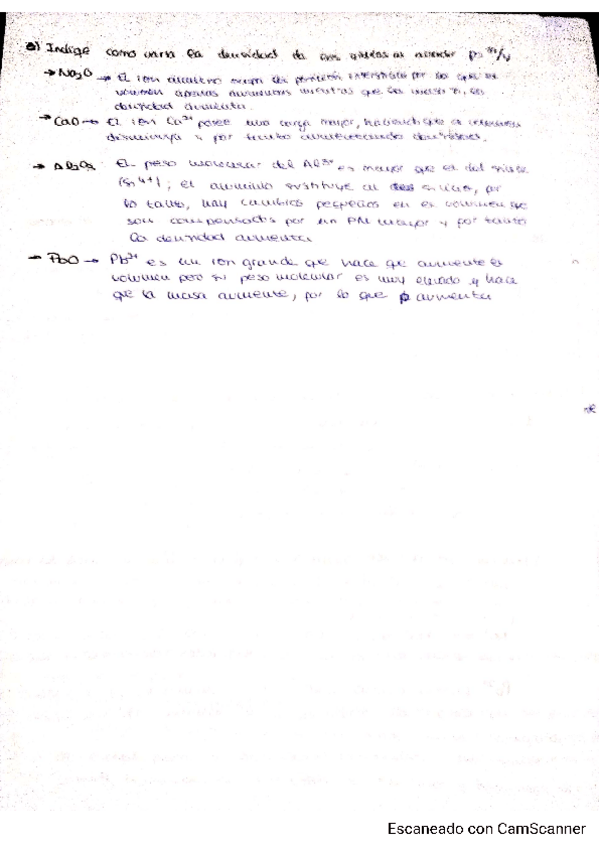 Indique como varia la densidad de los vidrios al añadir ρ= m/V
→ Na2O → El ion alcalino ocupa las posiciones intersticiales por lo que el
volumen apenas aumenta mientras que la masa si, la
densidad aumenta.
→ CaO → El ion Ca2+ posee una carga mayor, haciendo que el volumen
disminuya y por tanto aumentando densidad.
→ Al2O3 El peso molecular del Al3+ es mayor que el del
(Si4+); el aluminio sustituye al silicio, por
lo tanto, hay cambios pequeños en el volumen que
son compensados por un PM mayor y por tanto
la densidad aumenta
→ PbO → Pb2+ es un ion grande que hace que aumente el
volumen pero su peso molecular es muy elevado y hace
que la masa aumente, por lo que ρ aumenta
Escaneado con CamScanner